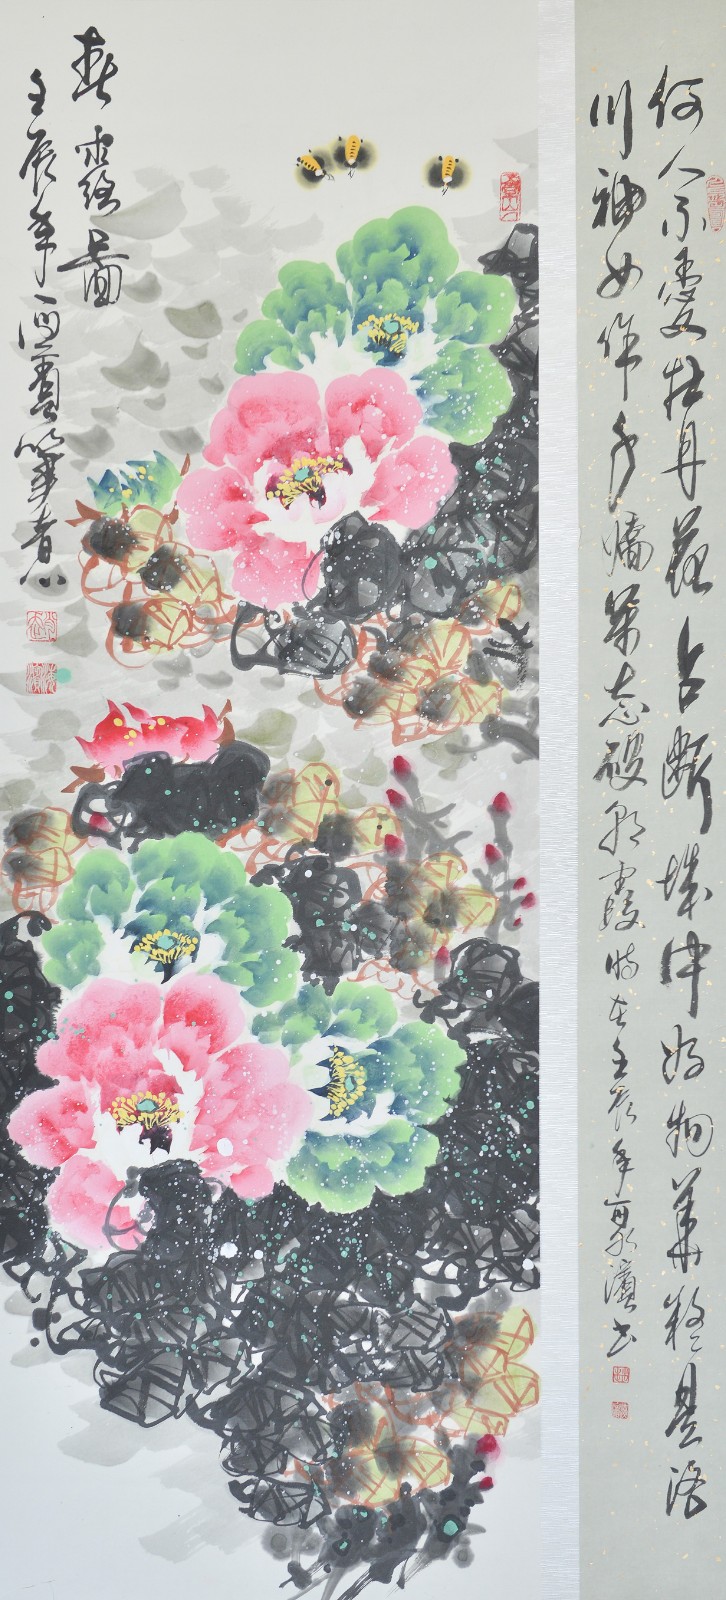 何人不愛牡丹花占断城中好物華疑是洛
川神女作千嬌萬态破朝霞時在壬辰年濱书
春圖
壬辰年筆意